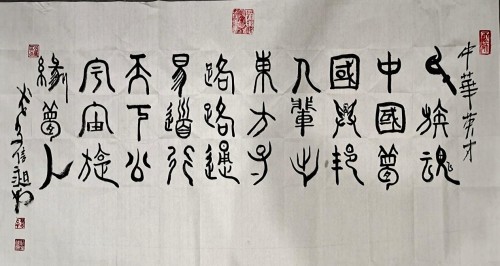 中華英才
民族魂
中國夢
國邦
人輩出
東方
路路通
易道行
天下公
宇宙旋
緣夢人